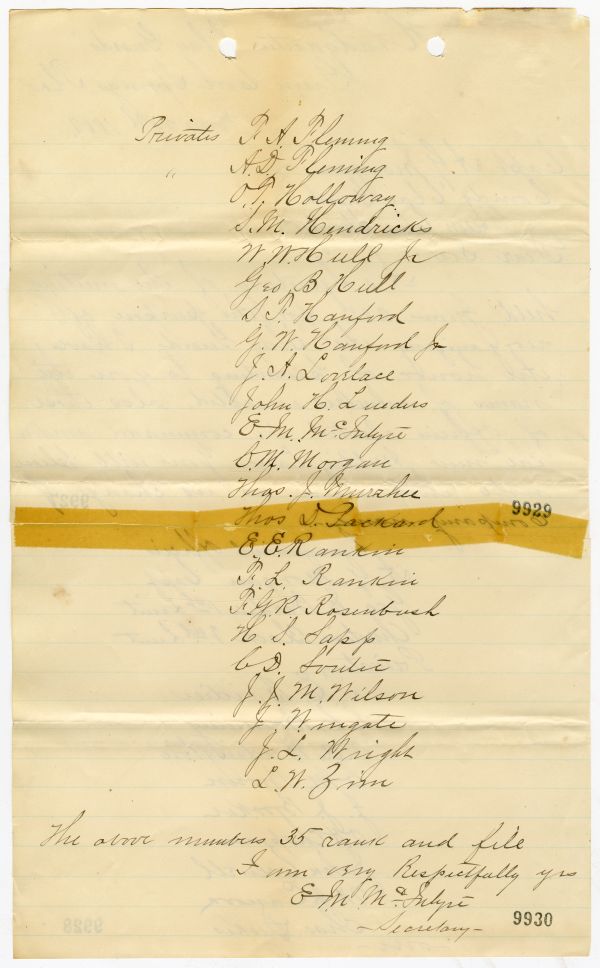 Privates F. A. Fleming
" A. D. Fleming
O. T. Holloway
S. M. Hendricks
W. W. Hull Jr
Geo B Hull
S. F. Hanford
G. W. Hanford Jr
J. A. Lovelace
John H. Lueders
E. M. McIntyre
C. M. Morgan
Thos. J. Murrhee
9929
Thos D. Packard
E. E. Rankin
F. L. Rankin
F. G. R. Rosenbush
H. S. Sapp
C. D. Soulit
J. J. M. Wilson
J. Wingate
J. L. Wright
L. W. Zim
The above numbers 35 rank and file
I am very Respectfully yrs
E M. McIntyre
-Secretary-
9930